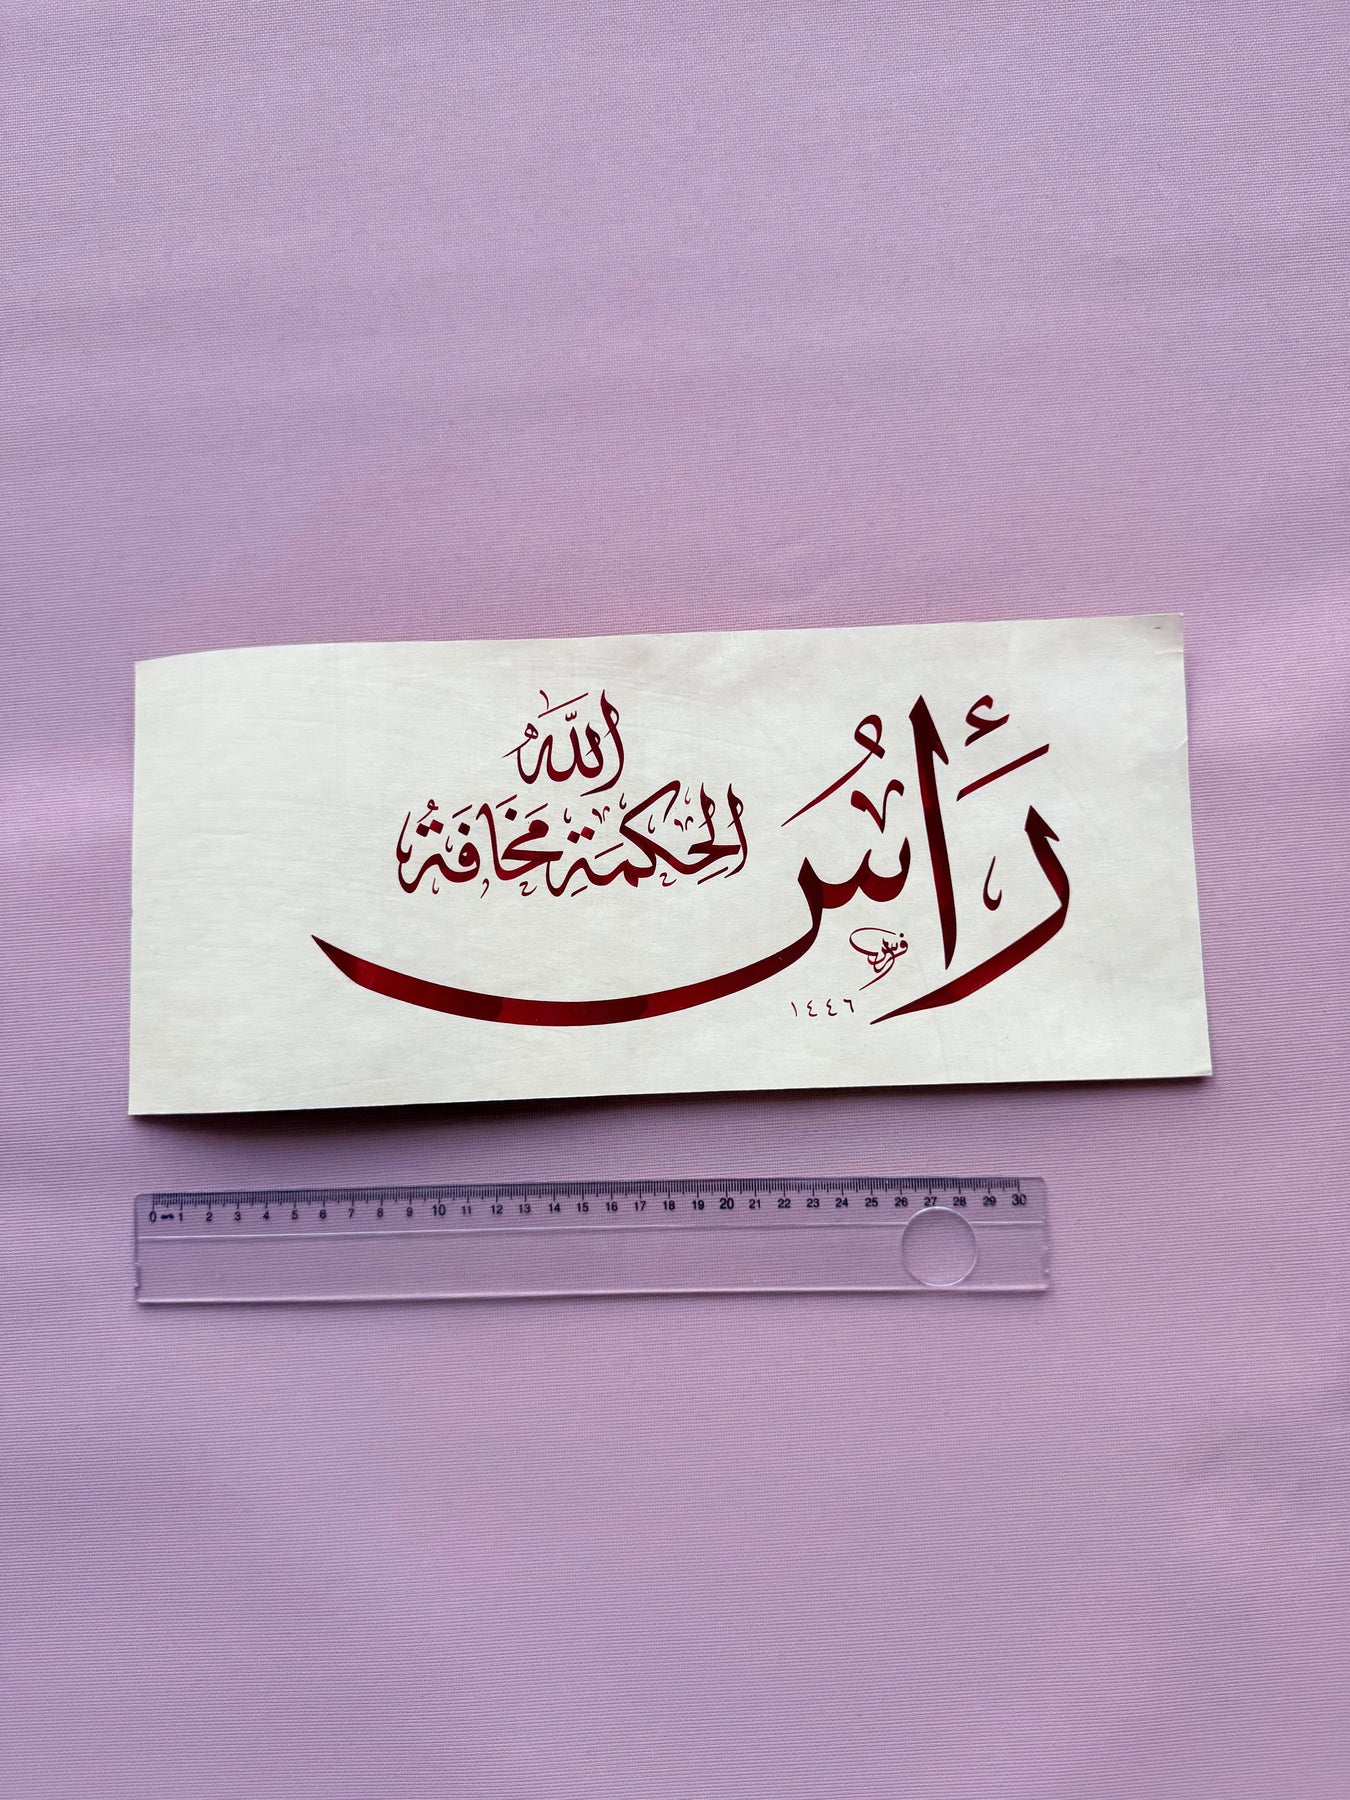 رَأْسُ الحِكمَةِ مَخَافَةُ اللَّهُ
١٤٤٦
0 1 2 3 4 5 6 7 8 9 10 11 12 13 14 15 16 17 18 19 20 21 22 23 24 25 26 27 28 29 30